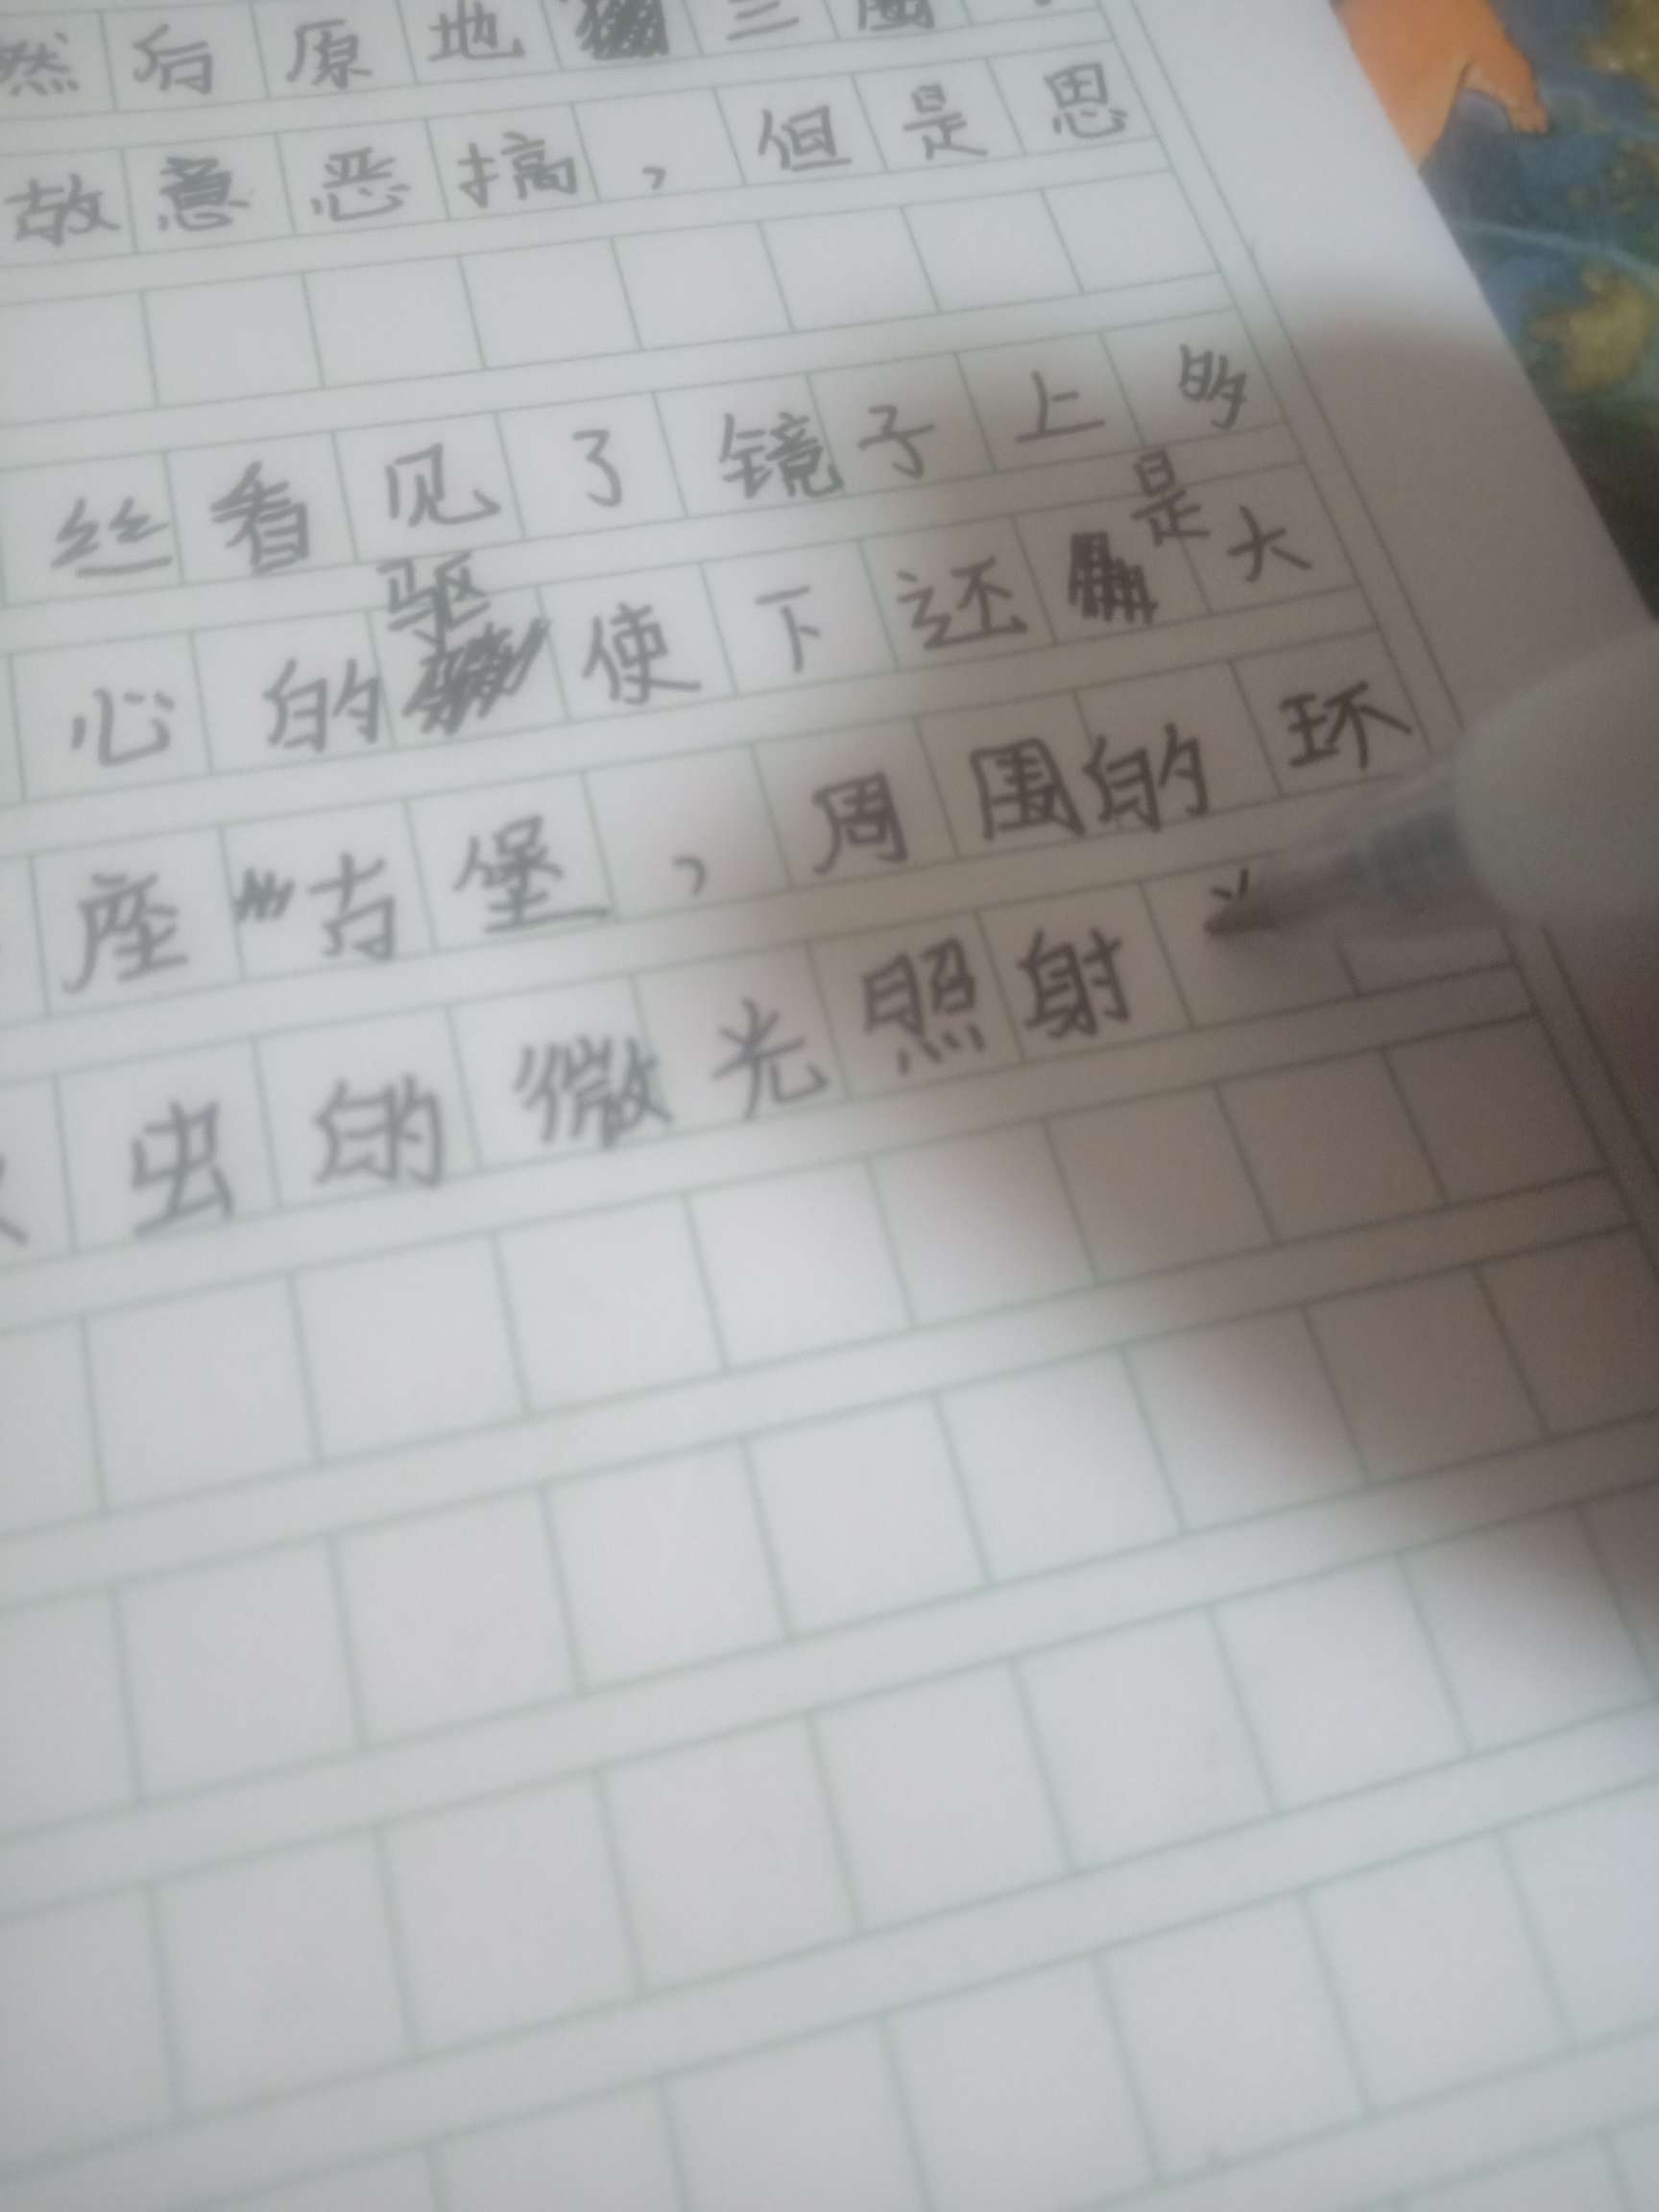 然后原地三圈
故意恶搞，但是思
丝看见了镜子上多
心的驱使下还是大
座古堡，周围的环
出的微光照射